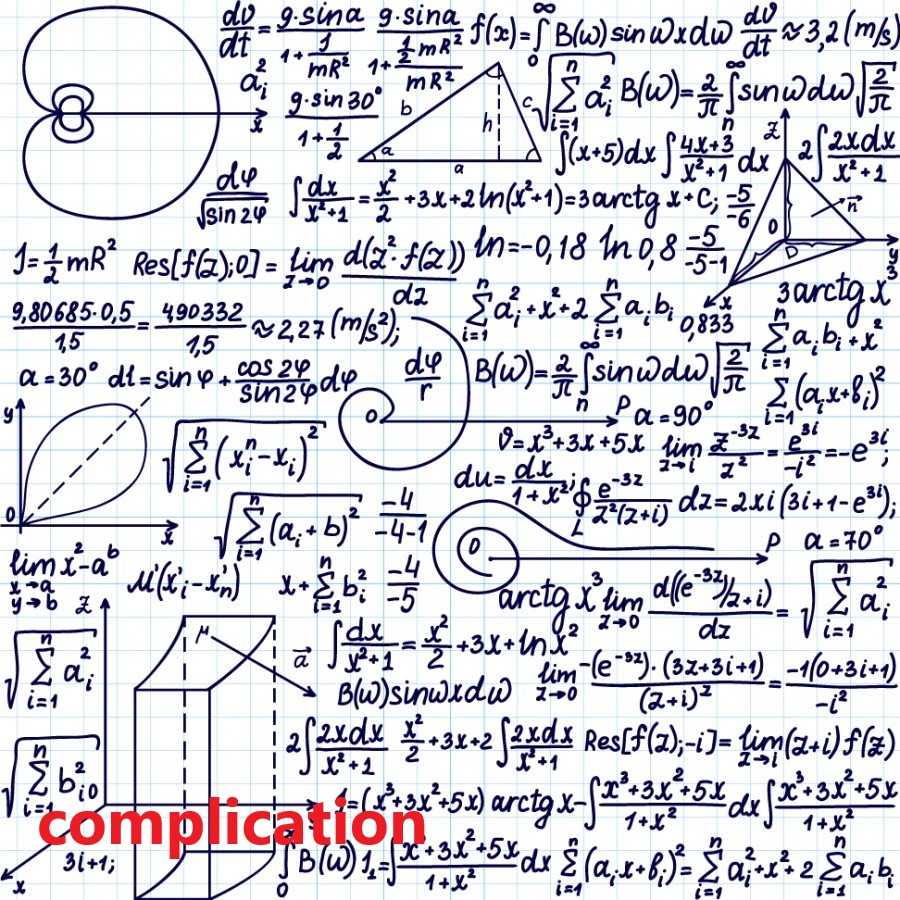 dϑ/dt = g·sinα/(1+1/mR²) g·sina/(1+(1/2 mR²)/mR²) f(x)=∫₀^∞ B(ω) sin ωx dω dϑ/dt ≈ 3,2 (m/s)
a_i² g·sin30°/(1+1/2) b c h a a √(∑_{i=1}^n a_i²) B(ω)=2/π ∫_n^∞ sin ω dω √(2/π)
x ∫(x+5)dx ∫(4x+3)/(x²+1) dx z 2∫2xdx/(x²+1)
dφ/√sin2φ ∫dx/(x²+1) = x²/2 +3x+2ln(x²+1)=3arctg x+C; -5/-6 n⃗ 0 D y x
J=1/2 mR² Res[f(z);0] = lim_{z→0} d(z²·f(z))/dz ln=-0,18 ln 0,8 -5/-5-1
9,80685·0,5/1,5 = 490332/1,5 ≈ 2,27 (m/s²); ∑_{i=1}^n a_i²+x²+2∑_{i=1}^n a_i b_i 0,833 3arctg x³
∑_{i=1}^n a_i b_i + x²
a=30° dl=sin φ + cos 2φ/sin 2φ dφ dφ/r B(ω)=2/π ∫_n^∞ sin ω dω √(2/π) ∑_{i=1} (a_i x+b_i)²
y 0 x 0 P a=90°
√(∑_{i=1}^n (x_i^n-x_i)²) ϑ=x³+3x+5x lim_{z→i} z^{-3z}/z² = e^{3i}/-i² =-e^{3i};
du=dx/(1+x²); ∮_L e^{-3z}/(z²(z+i)) dz=2xi(3i+1-e^{3i});
√(∑_{i=1}^n (a_i+b)²) -4/-4-1 0 P a=70°
lim_{x→a y→b} x²-a^b μ'(x'_i-x'_n) x+∑_{i=1}^n b_i² -4/-5 arctg x³ lim_{z→0} d((e^{-3z})/z+i)/dz = √(∑_{i=1}^n a_i²)
z μ a⃗ ∫dx/(x²+1) = x²/2 +3x+ln x²
√(∑_{i=1}^n a_i²) B(ω)sinωxdω lim_{z→0} -(e^{-3z})·(3z+3i+1)/(z+i)² = -1(0+3i+1)/-i²
2∫2xdx/(x²+1) x²/2 +3x+2∫2xdx/(x²+1) Res[f(z);-i]= lim_{z→i}(z+i) f(z)
√(∑_{i=1}^n b_{i0}²) =(x³+3x²+5x) arctg x-∫(x³+3x²+5x)/(1+x²) dx ∫(x³+3x²+5x)/(1+x²)
complication
3i+1; x ∫₀ B(ω) J₁=∫(x³+3x²+5x)/(1+x²) dx ∑_{i=1}^n (a_i x+b_i)²=∑_{i=1}^n a_i²+x²+2∑_{i=1}^n a_i b_i